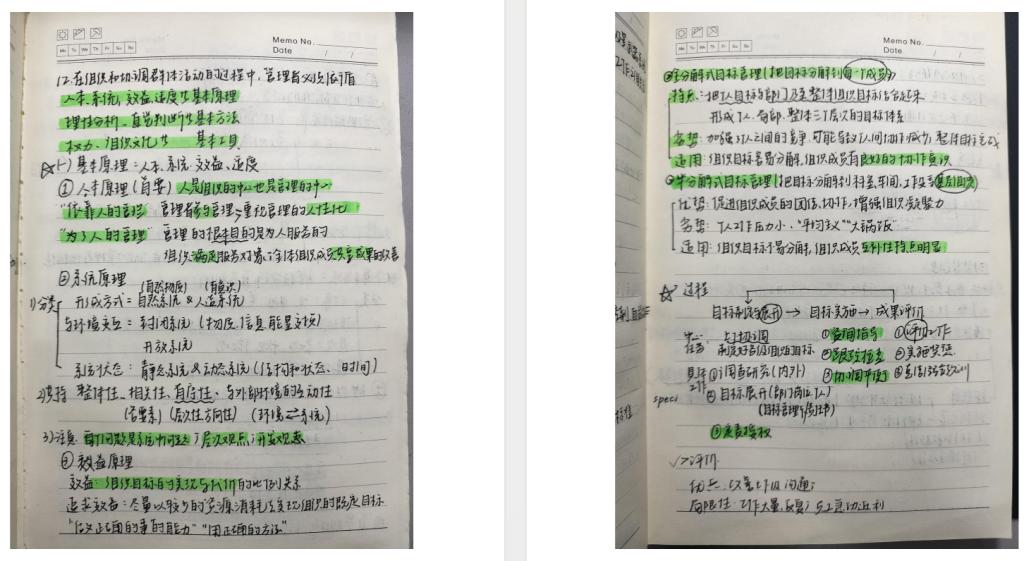 Memo No.
Date / /
Mo Tu We Th Fr Sa Su
12.在组织和协调群体活动的过程中,管理者必须依循
人本、系统、效益、适度为基本原理
理性分析、直觉判断为基本方法
权力、组织文化为 基本工具
(一)基本原理:人本、系统、效益、适度
①人本原理(首要)人是组织的中心也是管理的中心
“依靠人的管理” 管理者参与管理→重视管理的人性化
“为了人的管理” 管理的根本目的是为人服务的
组织满足服务对象
②系统原理
(自然物质) (有意识)
1)分类 形成方式=自然系统&人造系统
与环境交互=封闭系统(物质、信息、能量交换)
开放系统
系统状态:静态系统&动态系统(结构和状态、时间)
2)特 整体性、相关性、有序性、与外部环境的互动性
(各要素)(层次性方向性)(环境⇌系统)
3)注意 层次观点;开发观点
效益原理
效益:组织目标的实现与代价的比例关系
追求效益:尽量以较少的资源消耗去实现组织的既定目标
“做正确的事的能力”“用正确的方法”
Memo No.
Date / /
Mo Tu We Th Fr Sa Su
全分解式目标管理(把目标分解到每一个成员)
特点:把个人目标与部门及至整体组织目标结合起来
形成个人、局部、整体三个层次的目标体系
劣势:加强了人之间的竞争,可能导致人间协作减少,整体目标完成
适用:组织目标容易分解,组织成员有良好的协作意识
半分解式目标管理(把目标分解到科室、车间、工作段等基层组织)
优势:促进组织成员的团结、协作,增强组织凝聚力
劣势:个人工作压力小、“平均主义”“大锅饭”
适用:组织目标不易分解,组织成员
过程
目标制定与展开→目标实施→成果评价
中心 上下协调 ①咨询指导 ①评价工作
任务 制定好各级组织的目标 ②跟踪检查 ②实施奖惩
具体 ①调查研究(内外) ③协调平衡 ③总结经验教训
工作 ②目标展开(部门岗位个人)
(目标管理与责任书)
③定责授权
speci
>评价
局限性:工作大量、